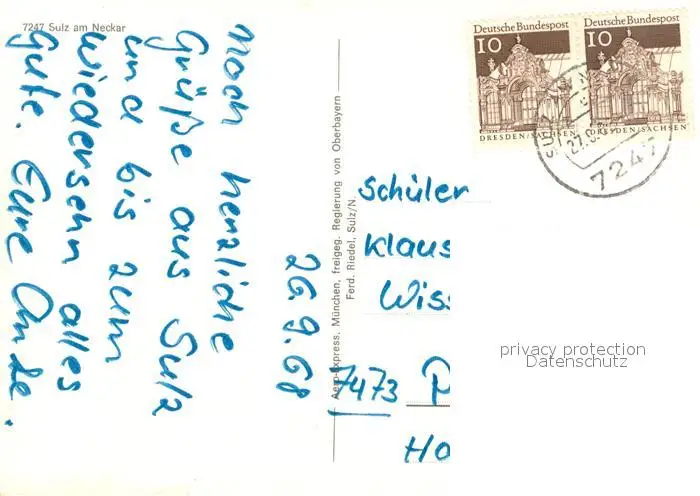 7247 Sulz am Neckar
26.9.68
Noch herzliche
Grüße aus Sulz
und bis zum
Wiedersehn alles
Gute. Eure
Aero-Express, München, freigeg. Regierung von Oberbayern
Ferd. Riedel, Sulz/N.
Deutsche Bundespost
10
DRESDEN/SACHSEN
Deutsche Bundespost
10
DRESDEN/SACHSEN
SULZ
27.9.
7247
Schüler
Klaus
Wiss
7473 P
Ho
privacy protection
Datenschutz